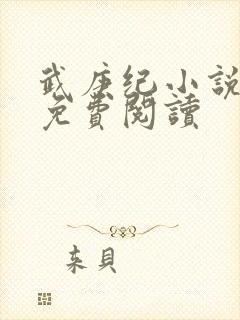 武庚纪小說
免費閱讀
来貝